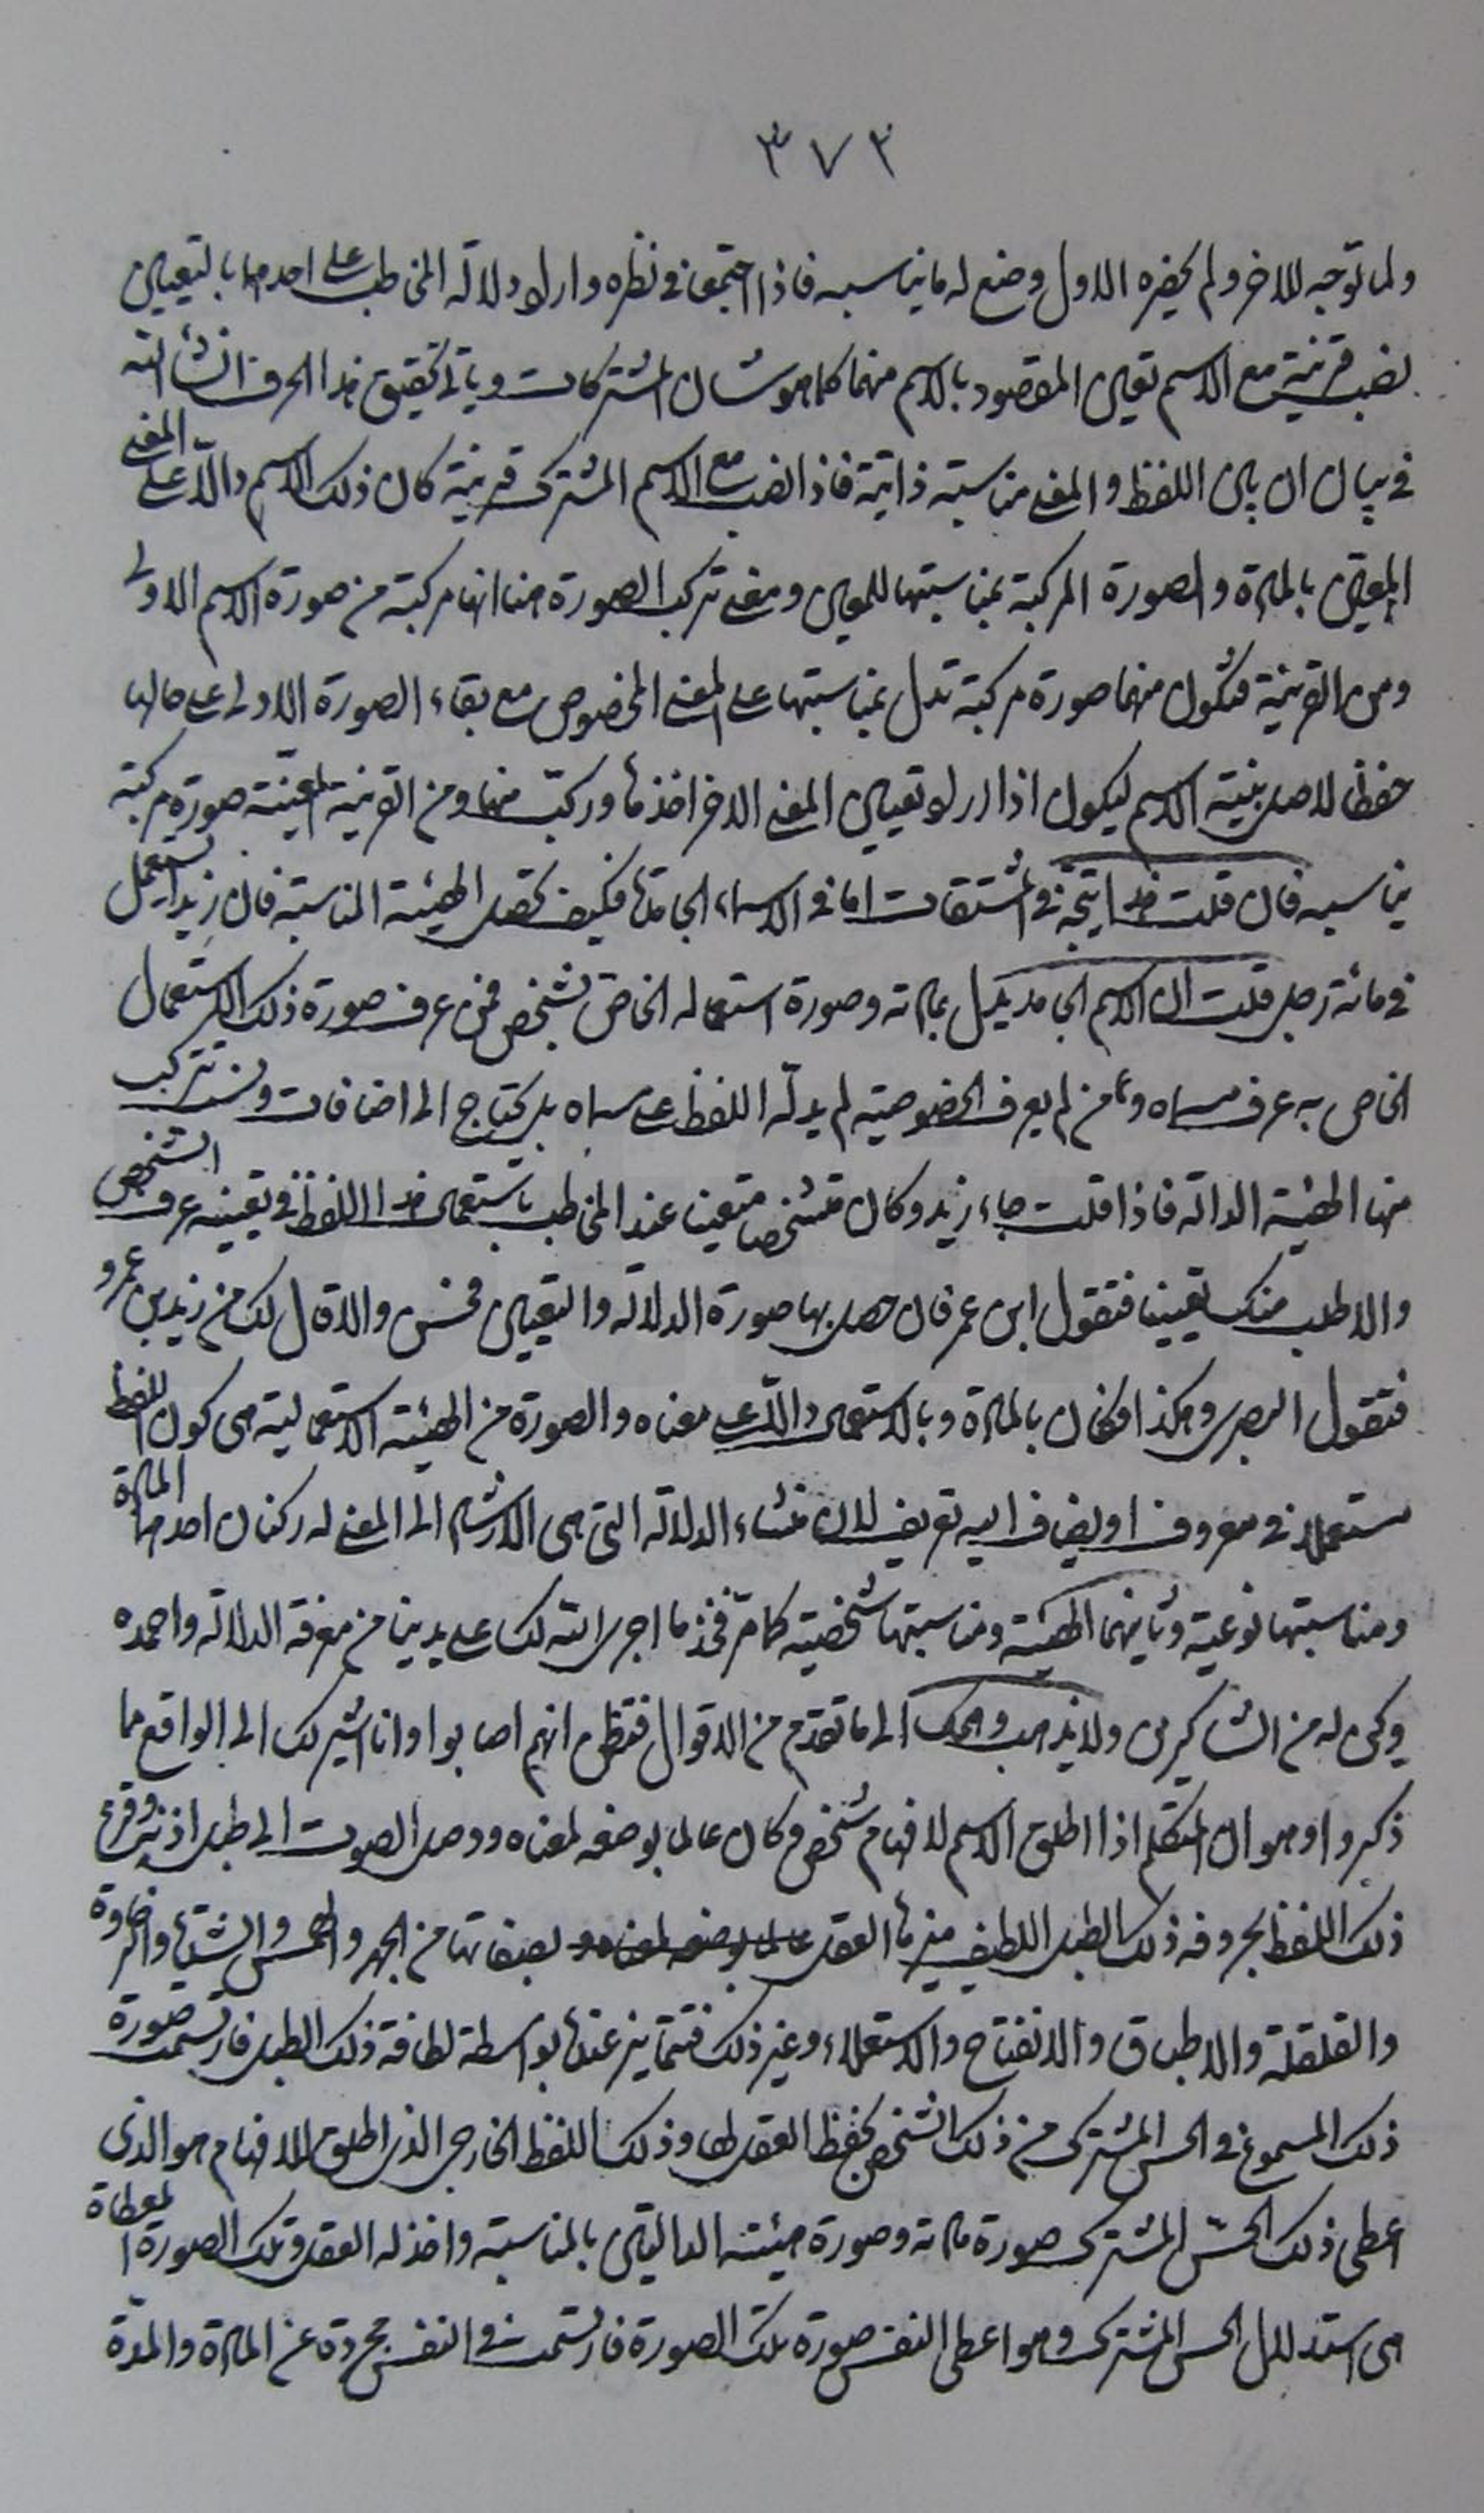 ٣٧٣
ولما توجه للاخر ولم يحضره الاول وضع له ما يناسبه فاذا اجتمعا في نظره واراد دلالة المخاطب على احدهما بالتعيين
نصب قرينة مع الاسم تعين المقصود بالاسم منهما كما هو شان المشتركات وياتي تحقيق هذا الحرف انشاء الله
في بيان ان بين اللفظ والمعنى مناسبة ذاتية فاذا نصب مع الاسم المشترك قرينة كان ذلك الاسم دالا على المعنى
المعين بالمادة والصورة المركبة بمناسبتها للمعين ومعنى تركب الصورة هنا انها مركبة من صورة الاسم الاولى
ومن القرينة فتكون منهما صورة مركبة تدل بمناسبتها على المعنى المخصوص مع بقاء الصورة الاولى على حالها
حفظا لاصل بنية الاسم ليكون اذا اراد تعيين المعنى الاخر اخذها وركب منها ومن القرينة المعينة صورة مركبة
يناسبه فان قلت هذا يتجه في المشتقات اما في الاسماء الجامدة فكيف تحصل الهيئة المناسبة فان زيدا يستعمل
في مائة رجل قلت ان الاسم الجامد يدل بمادته وصورة استعماله الخاص لشخص فمن عرف صورة ذلك الاستعمال
الخاص به عرف مسماه ومن لم يعرف الخصوصية لم يدله اللفظ على مسماه بل يحتاج الى اضافات ونسب تتركب
منها الهيئة الدالة فاذا قلت جاء زيد وكان متشخصا متعينا عند المخاطب باستعمال هذا اللفظ في تعيينه عرف الشخص
والا طلب منك تعيينا فتقول ابن عمر فان حصل بها صورة الدلالة والتعيين فحسن والا قال لك من زيد بن عمرو
فتقول البصري وهكذا فكان بالمادة وبالاستعمال دالا على معناه والصورة من الهيئة الاستعمالية هي كون اللفظ
مستعملا في معروف او يضاف اليه تعريف لان منشاء الدلالة التي هي الارشاد الى المعنى له ركنان احدهما المادة
ومناسبتها نوعية وثانيهما الهيئة ومناسبتها شخصية كما مر فخذ ما اجرى الله لك على يدينا من معرفة الدلالة واحمده
وكن له من الشاكرين ولا يذهب وهمك الى ما تقدم من الاقوال فتظن انهم اصابوا وانا اشير لك الى الواقع مما
ذكروا وهو ان المتكلم اذا اطلق الاسم لافهام شخص وكان عالما بوضعه لمعناه ووصل الصوت الى طبل اذنه وقرع
ذلك اللفظ بحروفه ذلك الطبل اللطيف ميزها العقل بصفاتها من الجهر والهمس والشدة والرخاوة
والقلقلة والاطباق والانفتاح والاستعلاء وغير ذلك فتتمايز عندها بواسطة لطافة ذلك الطبل فارتسمت صورة
ذلك المسموع في الحس المشترك من ذلك الشخص بحفظ العقل لها وذلك اللفظ الخارجي الذي اطلق للافهام هو الذي
اعطى ذلك الحس المشترك صورة مادته وصورة هيئته الدالتين بالمناسبة واخذ له العقل وتلك الصورة المعطاة
هي استدلال الحس المشترك وهو اعطى النفس صورة تلك الصورة فارتسمت في النفس مجردة عن المادة والمدة